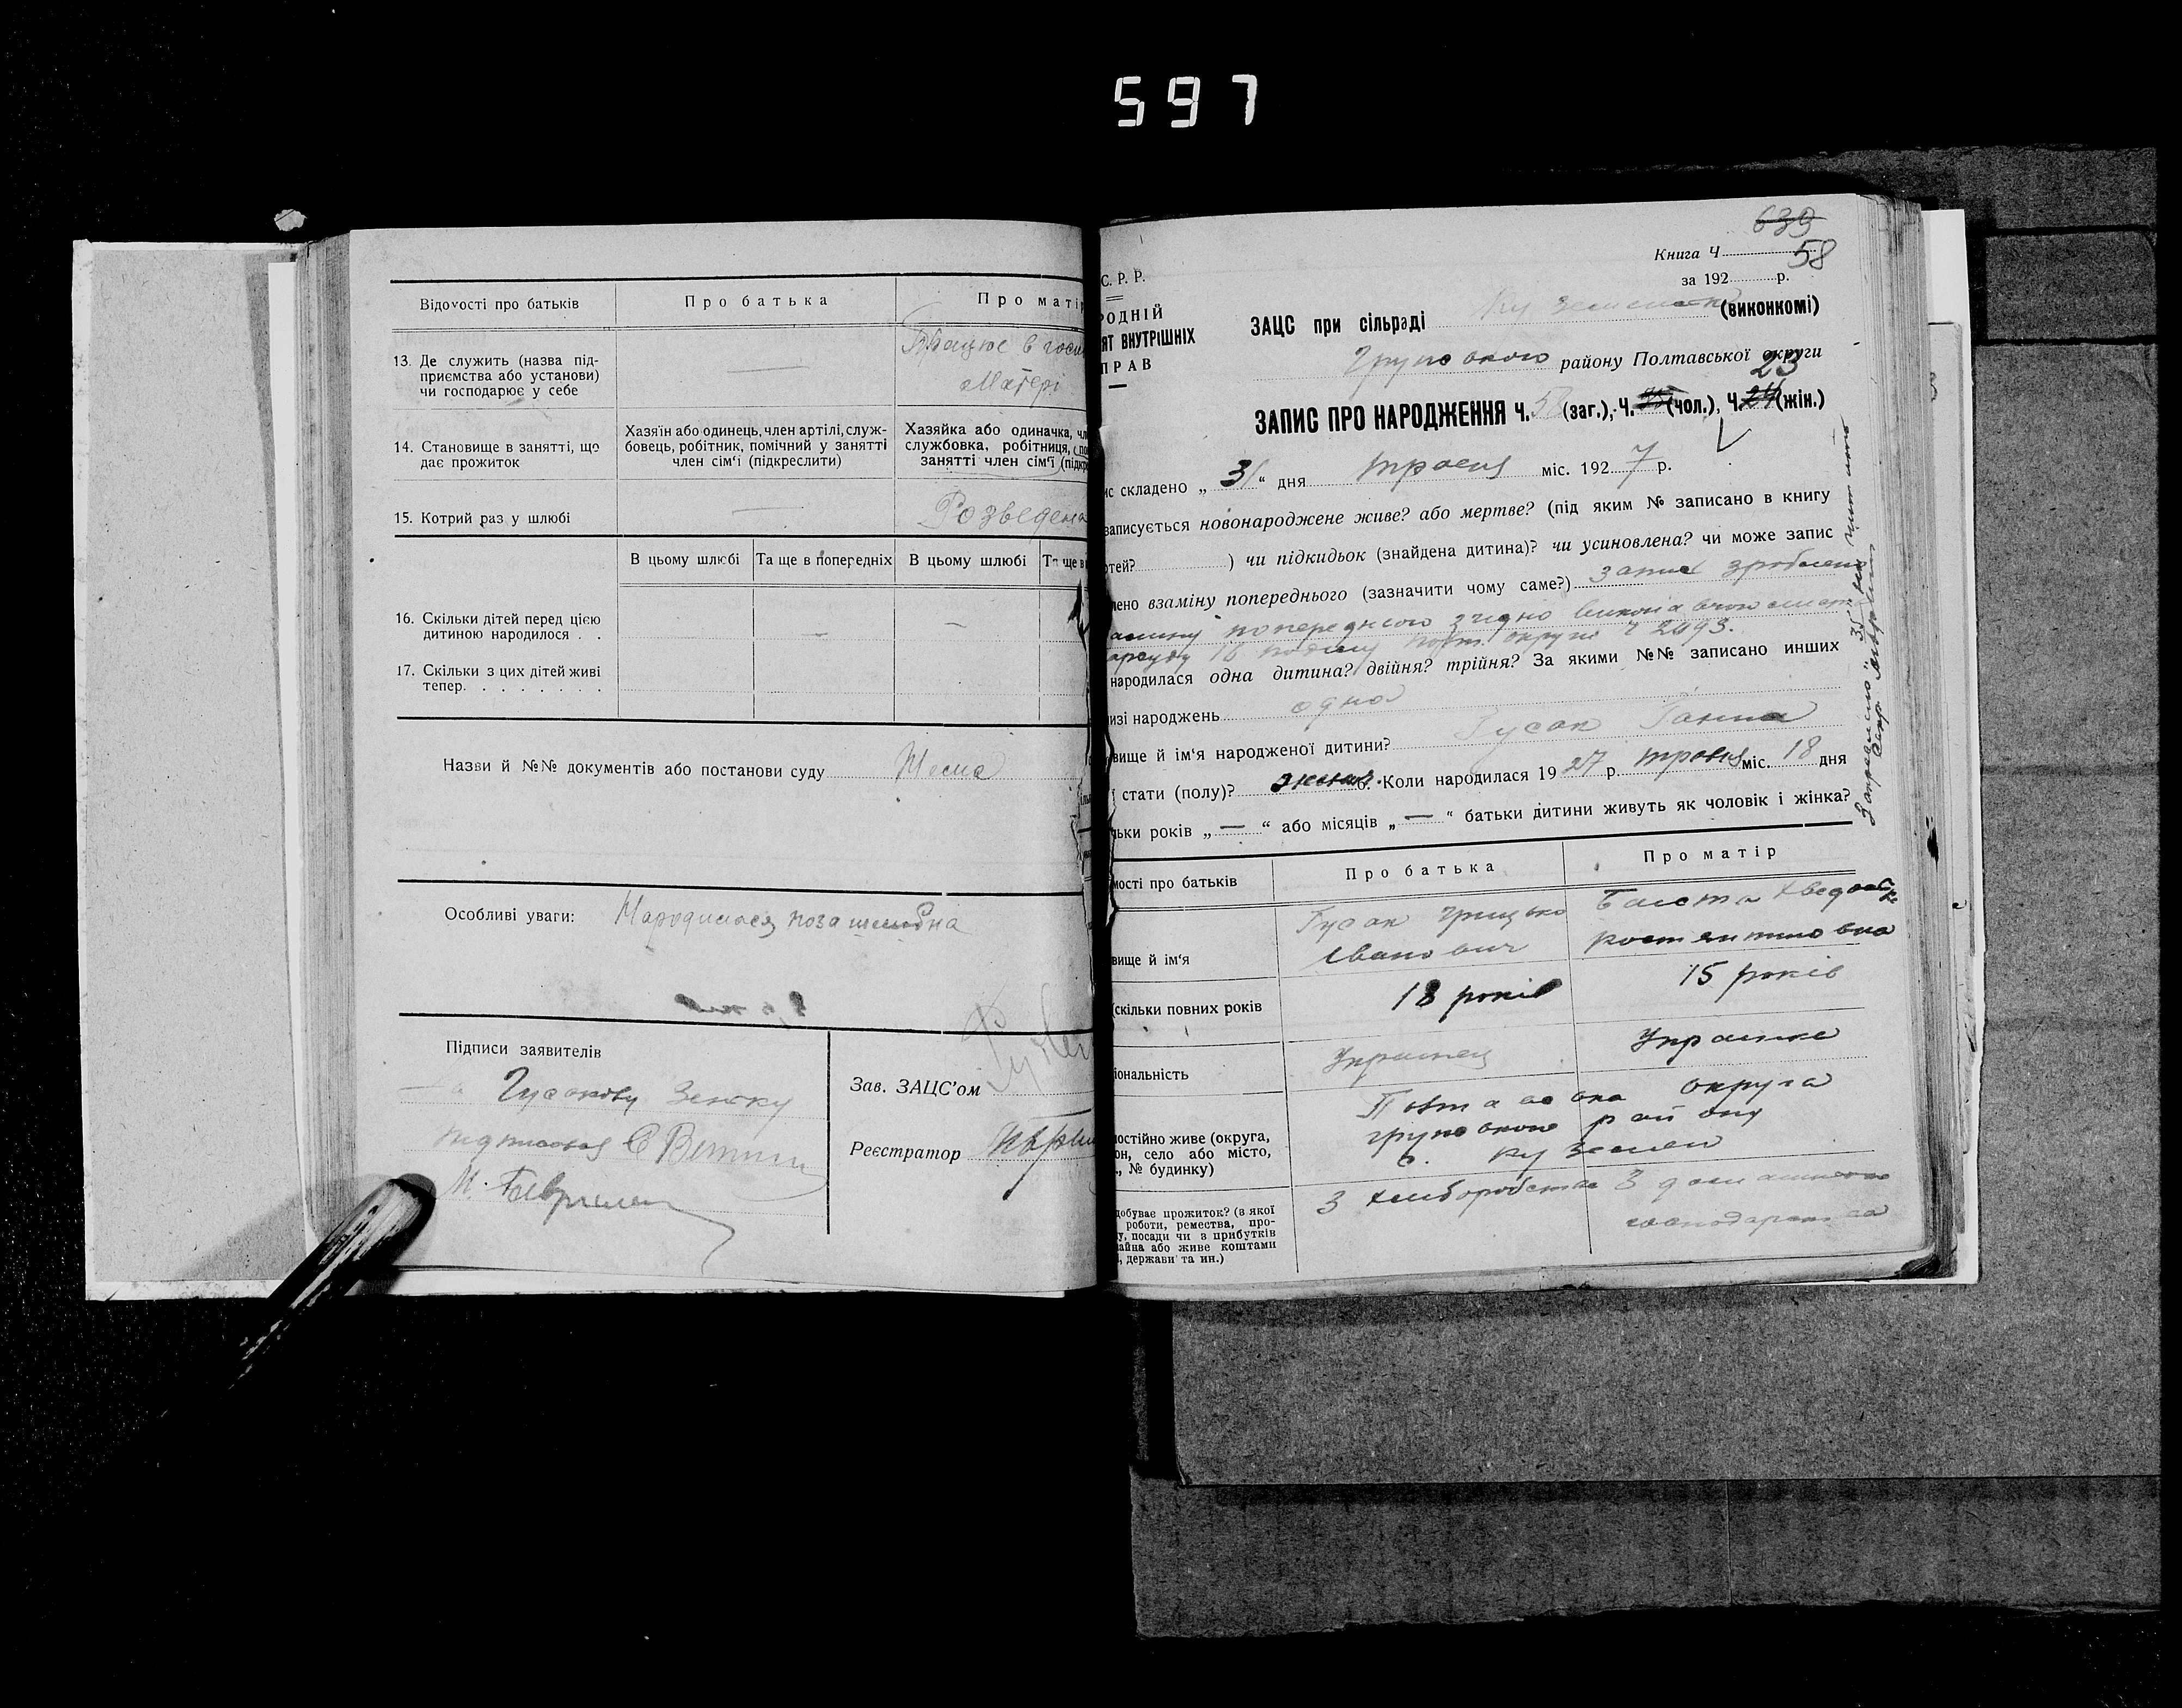 597
Відомості про батьків
Про батька
Про матір
13. Де служить (назва під-
приємства або установи)
чи господарює у себе
Працює в госп
Матері
14. Становище в занятті, що
дає прожиток
Хазяїн або одинець, член артілі, служ-
бовець, робітник, помічний у занятті
член сім'ї (підкреслити)
Хазяйка або одиначка, чл
службовка, робітниця, по
занятті член сім'ї (підкр
15. Котрий раз у шлюбі
Розведена
В цьому шлюбі
Та ще в попередніх
В цьому шлюбі
Та ще в
16. Скільки дітей перед цією
дитиною народилося . .
17. Скільки з цих дітей живі
тепер. . . . . . . .
Назви й №№ документів або постанови суду
Особливі уваги: Народилася поза шлюбна
Підписи заявителів
За Гусакову
підписався
М. Гаврилен
Зав. ЗАЦС'ом
Реєстратор
639
Книга Ч. 58
за 192 р.
С. Р. Р.
РОДНІЙ
ЯТ ВНУТРІШНІХ
ПРАВ
ЗАЦС при сільраді (виконкомі)
району Полтавської округи
23
ЗАПИС ПРО НАРОДЖЕННЯ Ч. 58 (заг.), Ч. (чол.), Ч. 24 (жін.)
ис складено „31“ дня травня міс. 1927 р.
записується новонароджене живе? або мертве? (під яким № записано в книгу
ртей? ) чи підкидьок (знайдена дитина)? чи усиновлена? чи може запис
лено взаміну попереднього (зазначити чому саме?) запис зроблено
попереднього згідно
округи Ч 2093.
народилася одна дитина? двійня? трійня? За якими №№ записано инших
изі народжень одна
вище й ім'я народженої дитини? Гусак Ганна
ї стати (полу)? жіноч. Коли народилася 1927 р. травня міс. 18 дня
льки років „—“ або місяців „—“ батьки дитини живуть як чоловік і жінка?
мості про батьків
Про батька
Про матір
вище й ім'я
Гусак Грицько
Іванович
Костянтиновна
(скільки повних років
18 років
15 років
іональність
Українец
Українка
постійно живе (округа,
он, село або місто,
., № будинку)
Полтавська округа
району
с.
добуває прожиток? (в якої
роботи, ремества, про-
у, посади чи з прибутків
айна або живе коштами
, держави та ин.)
З хліборобства
З домашнього
господарства